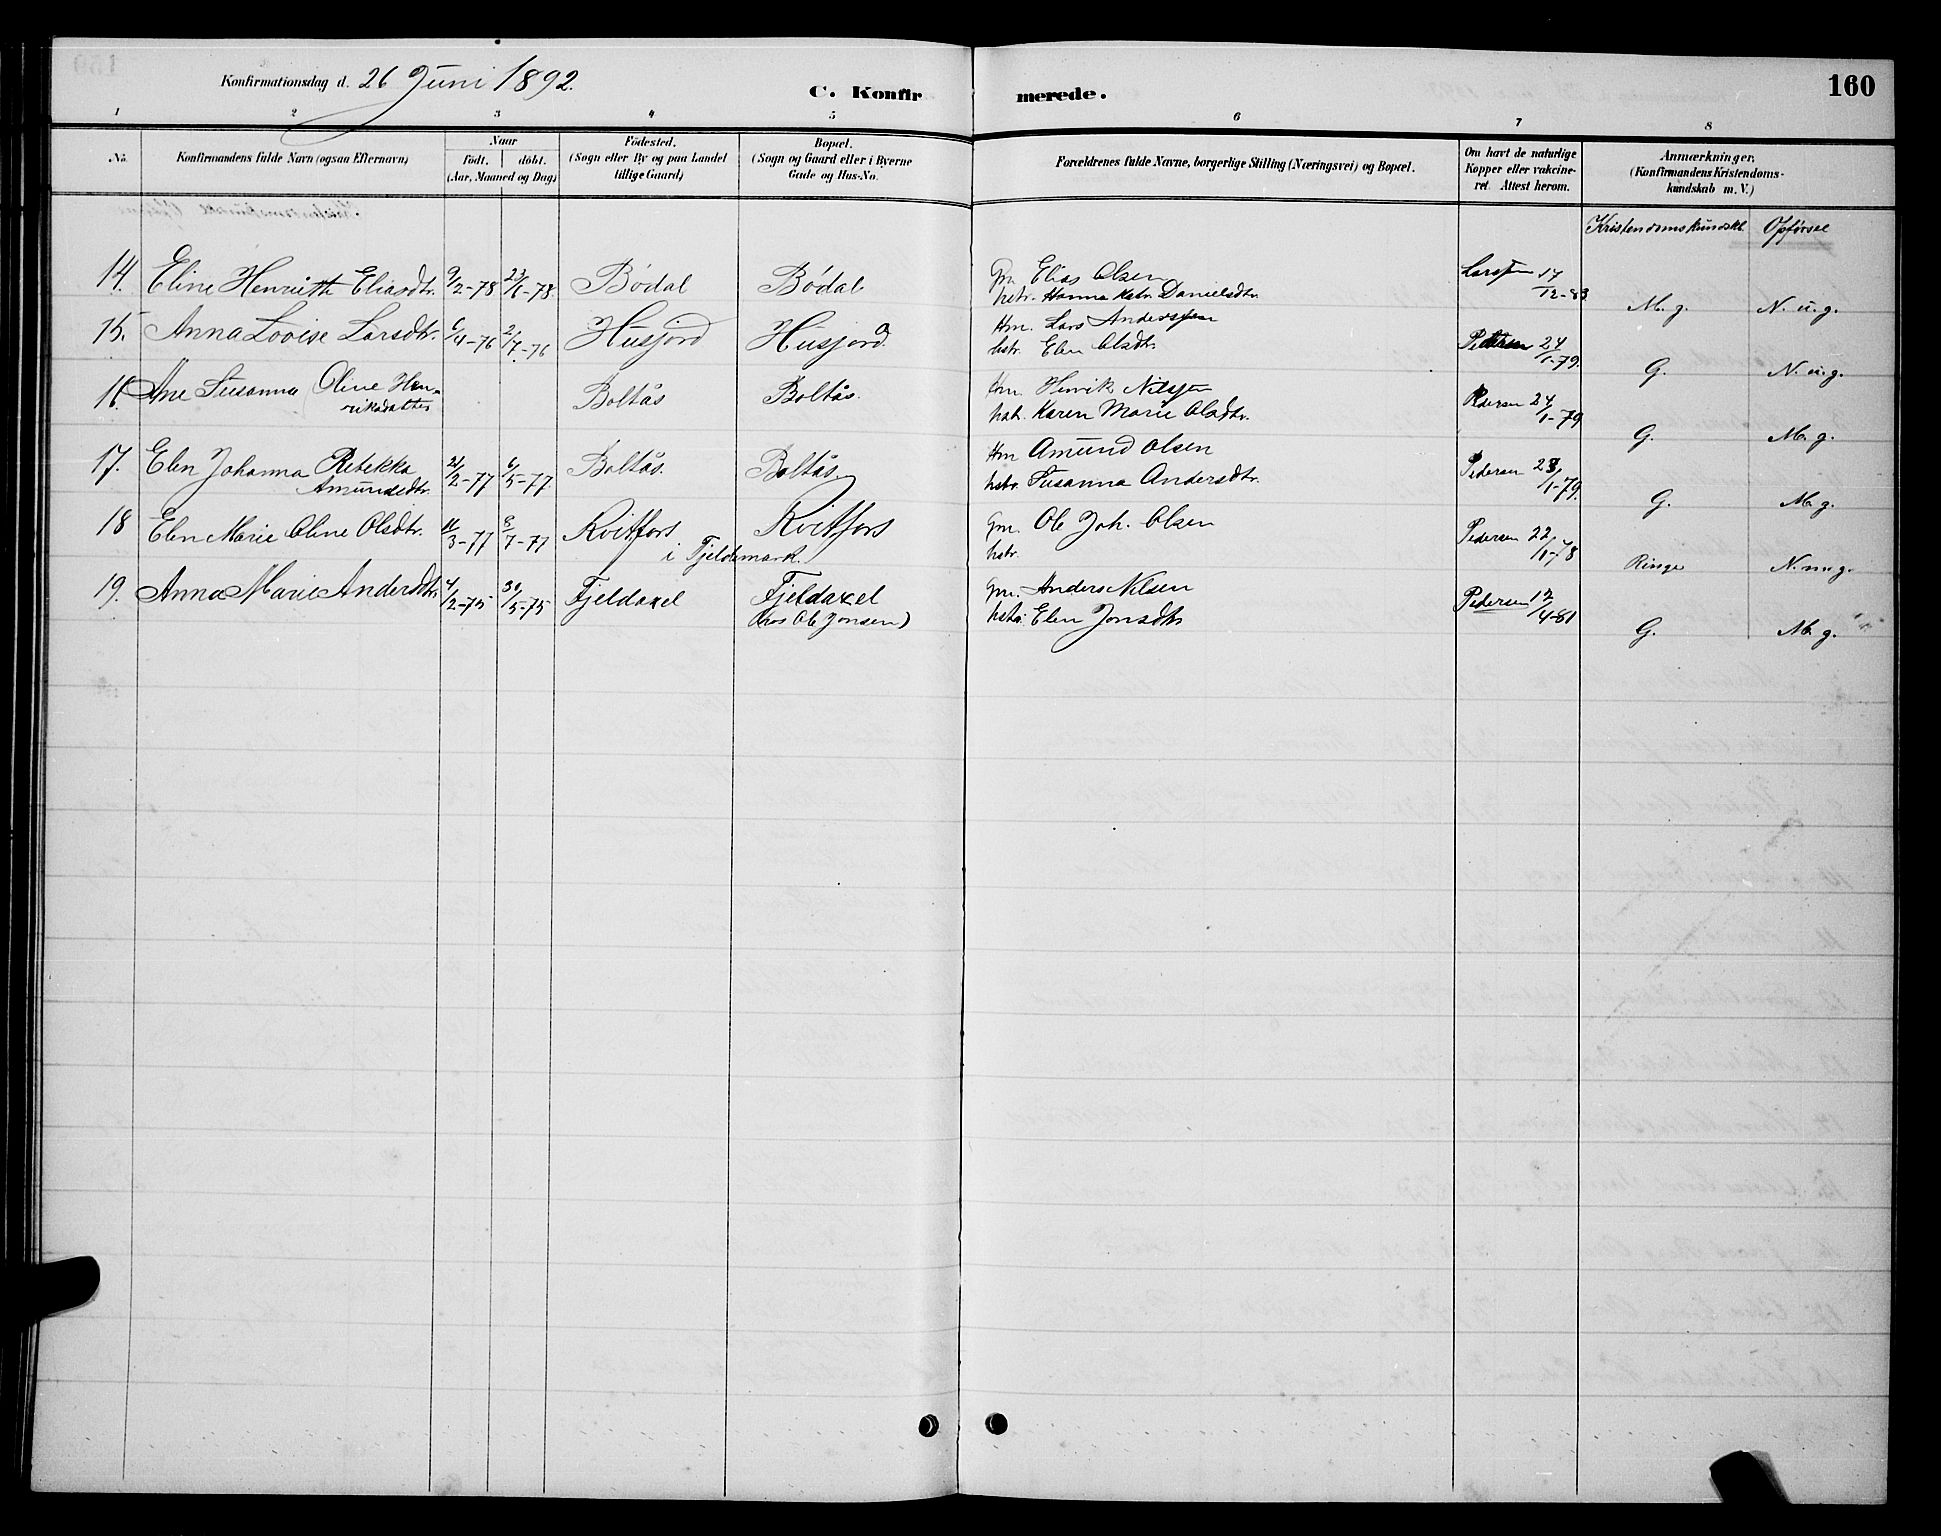 Konfirmationsdag d. 26 Juni 1892.
C. Konfirmerede.
160
1 2 3 4 5 6 7 8
No.
Konfirmandens fulde Navn (ogsaa Efternavn)
Naar
født. døbt.
(Aar, Maaned og Dag)
Fødested.
(Sogn eller By og paa Landet
tillige Gaard)
Bopæl.
(Sogn og Gaard eller i Byerne
Gade og Hus-No.
Forældrenes fulde Navne, borgerlige Stilling (Næringsvei) og Bopæl.
Om havt de naturlige
Kopper eller vakcine-
ret. Attest herom.
Anmærkninger.
(Konfirmandens Kristendoms-
kundskab m. V.)
Kristendomskundskb. Opførsel
14. Eline Henriette Eliasdtr. 9/2-78 23/6-78. Bødal Bødal Gm. Elias Olsen Larsen 17/12-83
hstr. Hanna Katr. Danielsdtr. M. g. N. u. g.
15. Anna Lovise Larsdtr. 6/4-76 2/7-76 Husjord Husjord. Hm. Lars Anderssen
hstr. Elen Olsdtr. Pedersen 24/1-79. G. N. u. g.
16. Ane Susanna Oline Hen-
riksdatter Boltås Boltås. Hm. Henrik Nilssen
hstr. Karen Marie Olsdtr. Pedersen 24/1-79 G. M. g.
17. Elen Johanna Rebekka
Amundsdtr. 21/2-77 6/5-77. Boltås. Boltås. Hm Amund Olsen
hstr. Susanna Andersdtr. Pedersen 23/1-79. G. M. g.
18 Elen Marie Oline Olsdtr. 11/3-77 8/7-77 Kvitfors Kvitfors
i Fjeldemark. Gm. Ole Joh. Olsen
hstr. Pedersen 22/11-78 Ringe N. m. g.
19. Anna Marie Andersdtr. 4/2-75 30/5-75 Fjeldaxel Fjeldaxel
(hos Ole Jonsen) Gm. Anders Nilsen
hstr. Elen Jonsdtr Pedersen 12/4-81 G. M. g.